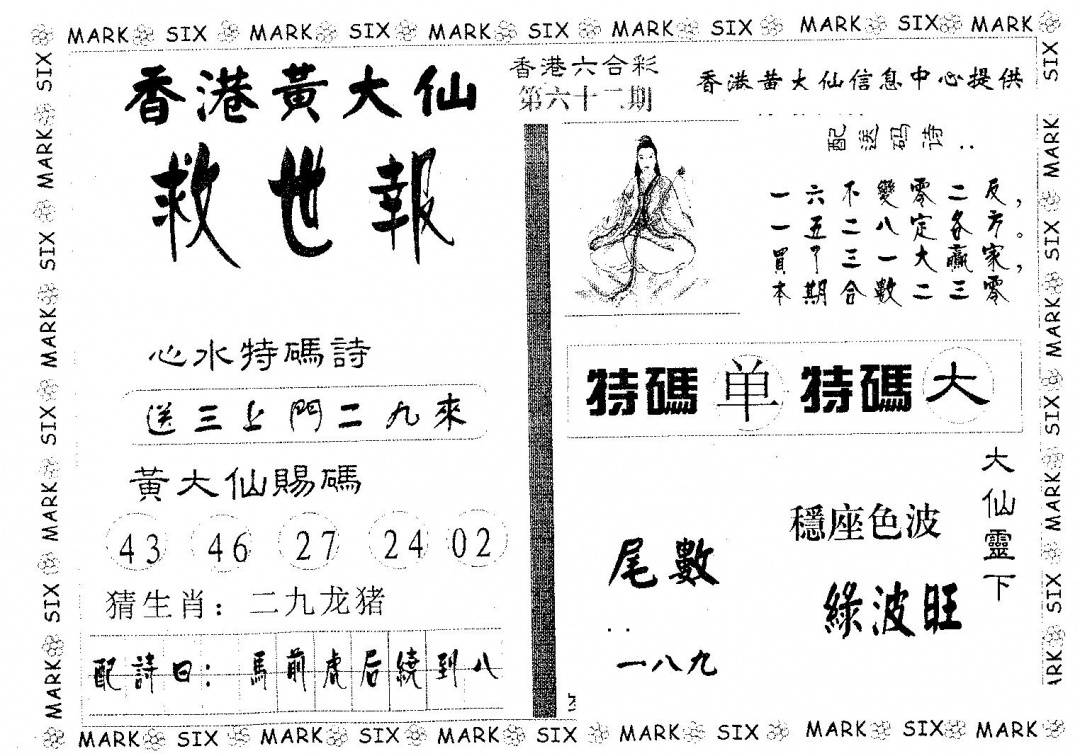 MARK SIX MARK SIX MARK SIX MARK SIX MARK SIX MARK
香港黃大仙
救世報
香港六合彩
第六十二期
香港黄大仙信息中心提供
心水特碼詩
送三上門二九來
黃大仙賜碼
43 46 27 24 02
猜生肖：二九龙猪
配詩曰：馬前虎后繞到八
配送码诗：
一六不變零二反，
一五二八定各方。
買中三一大贏家，
本期合數二三零
特碼 单 特碼 大
尾數
：
一八九
穩座色波
綠波旺
大仙靈下
SIX MARK SIX MARK SIX MARK SIX MARK
SIX MARK SIX MARK SIX MARK SIX ARK
MARK SIX MARK SIX MARK SIX MARK SIX MARK SIX MARK